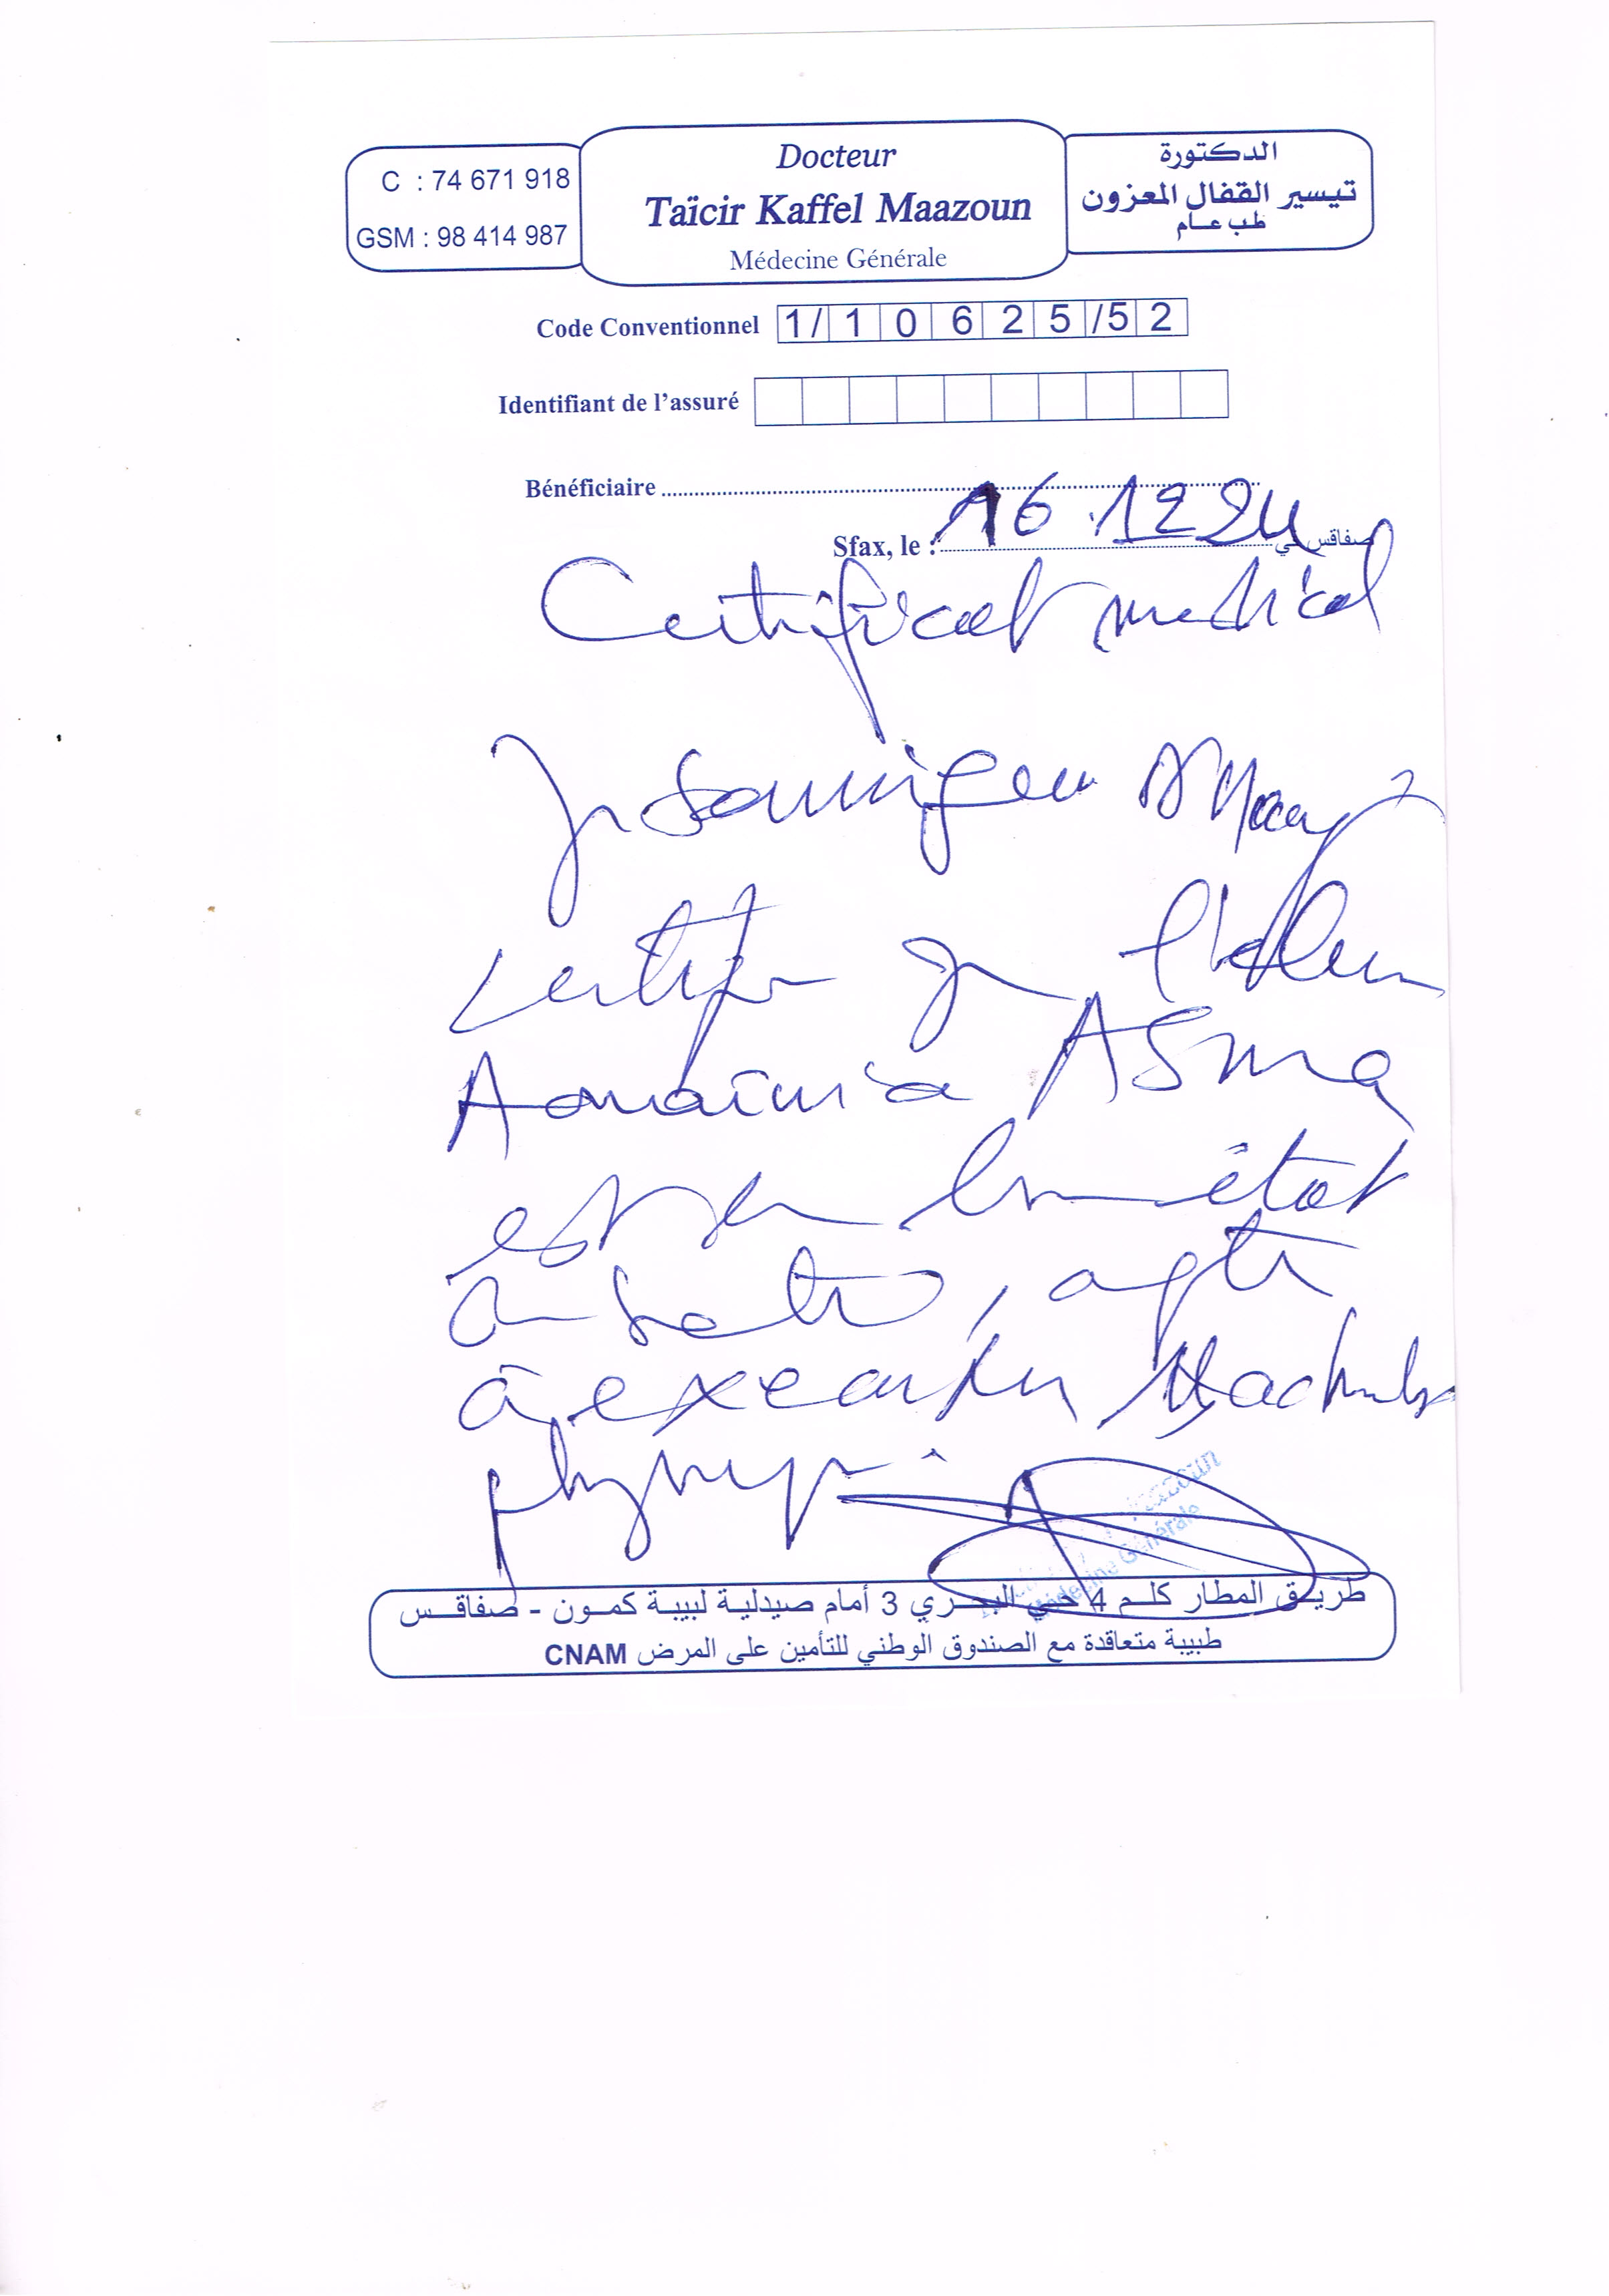 C : 74 671 918
GSM : 98 414 987
Docteur
Taïcir Kaffel Maazoun
Médecine Générale
الدكتورة
تيسير القفال المعزون
طب عام
Code Conventionnel 1/10625/52
Identifiant de l'assuré
Bénéficiaire
Sfax, le : 16.12.24 صفاقس في
Certificat medical
Je soussignee Dr
certifie que
Asma
est en bon état
de santé, apte
à executer
physique
Maazoun
Médecine Générale
طريق المطار كلم 4 حي البحري 3 أمام صيدلية لبيبة كمون - صفاقس
طبيبة متعاقدة مع الصندوق الوطني للتأمين على المرض CNAM